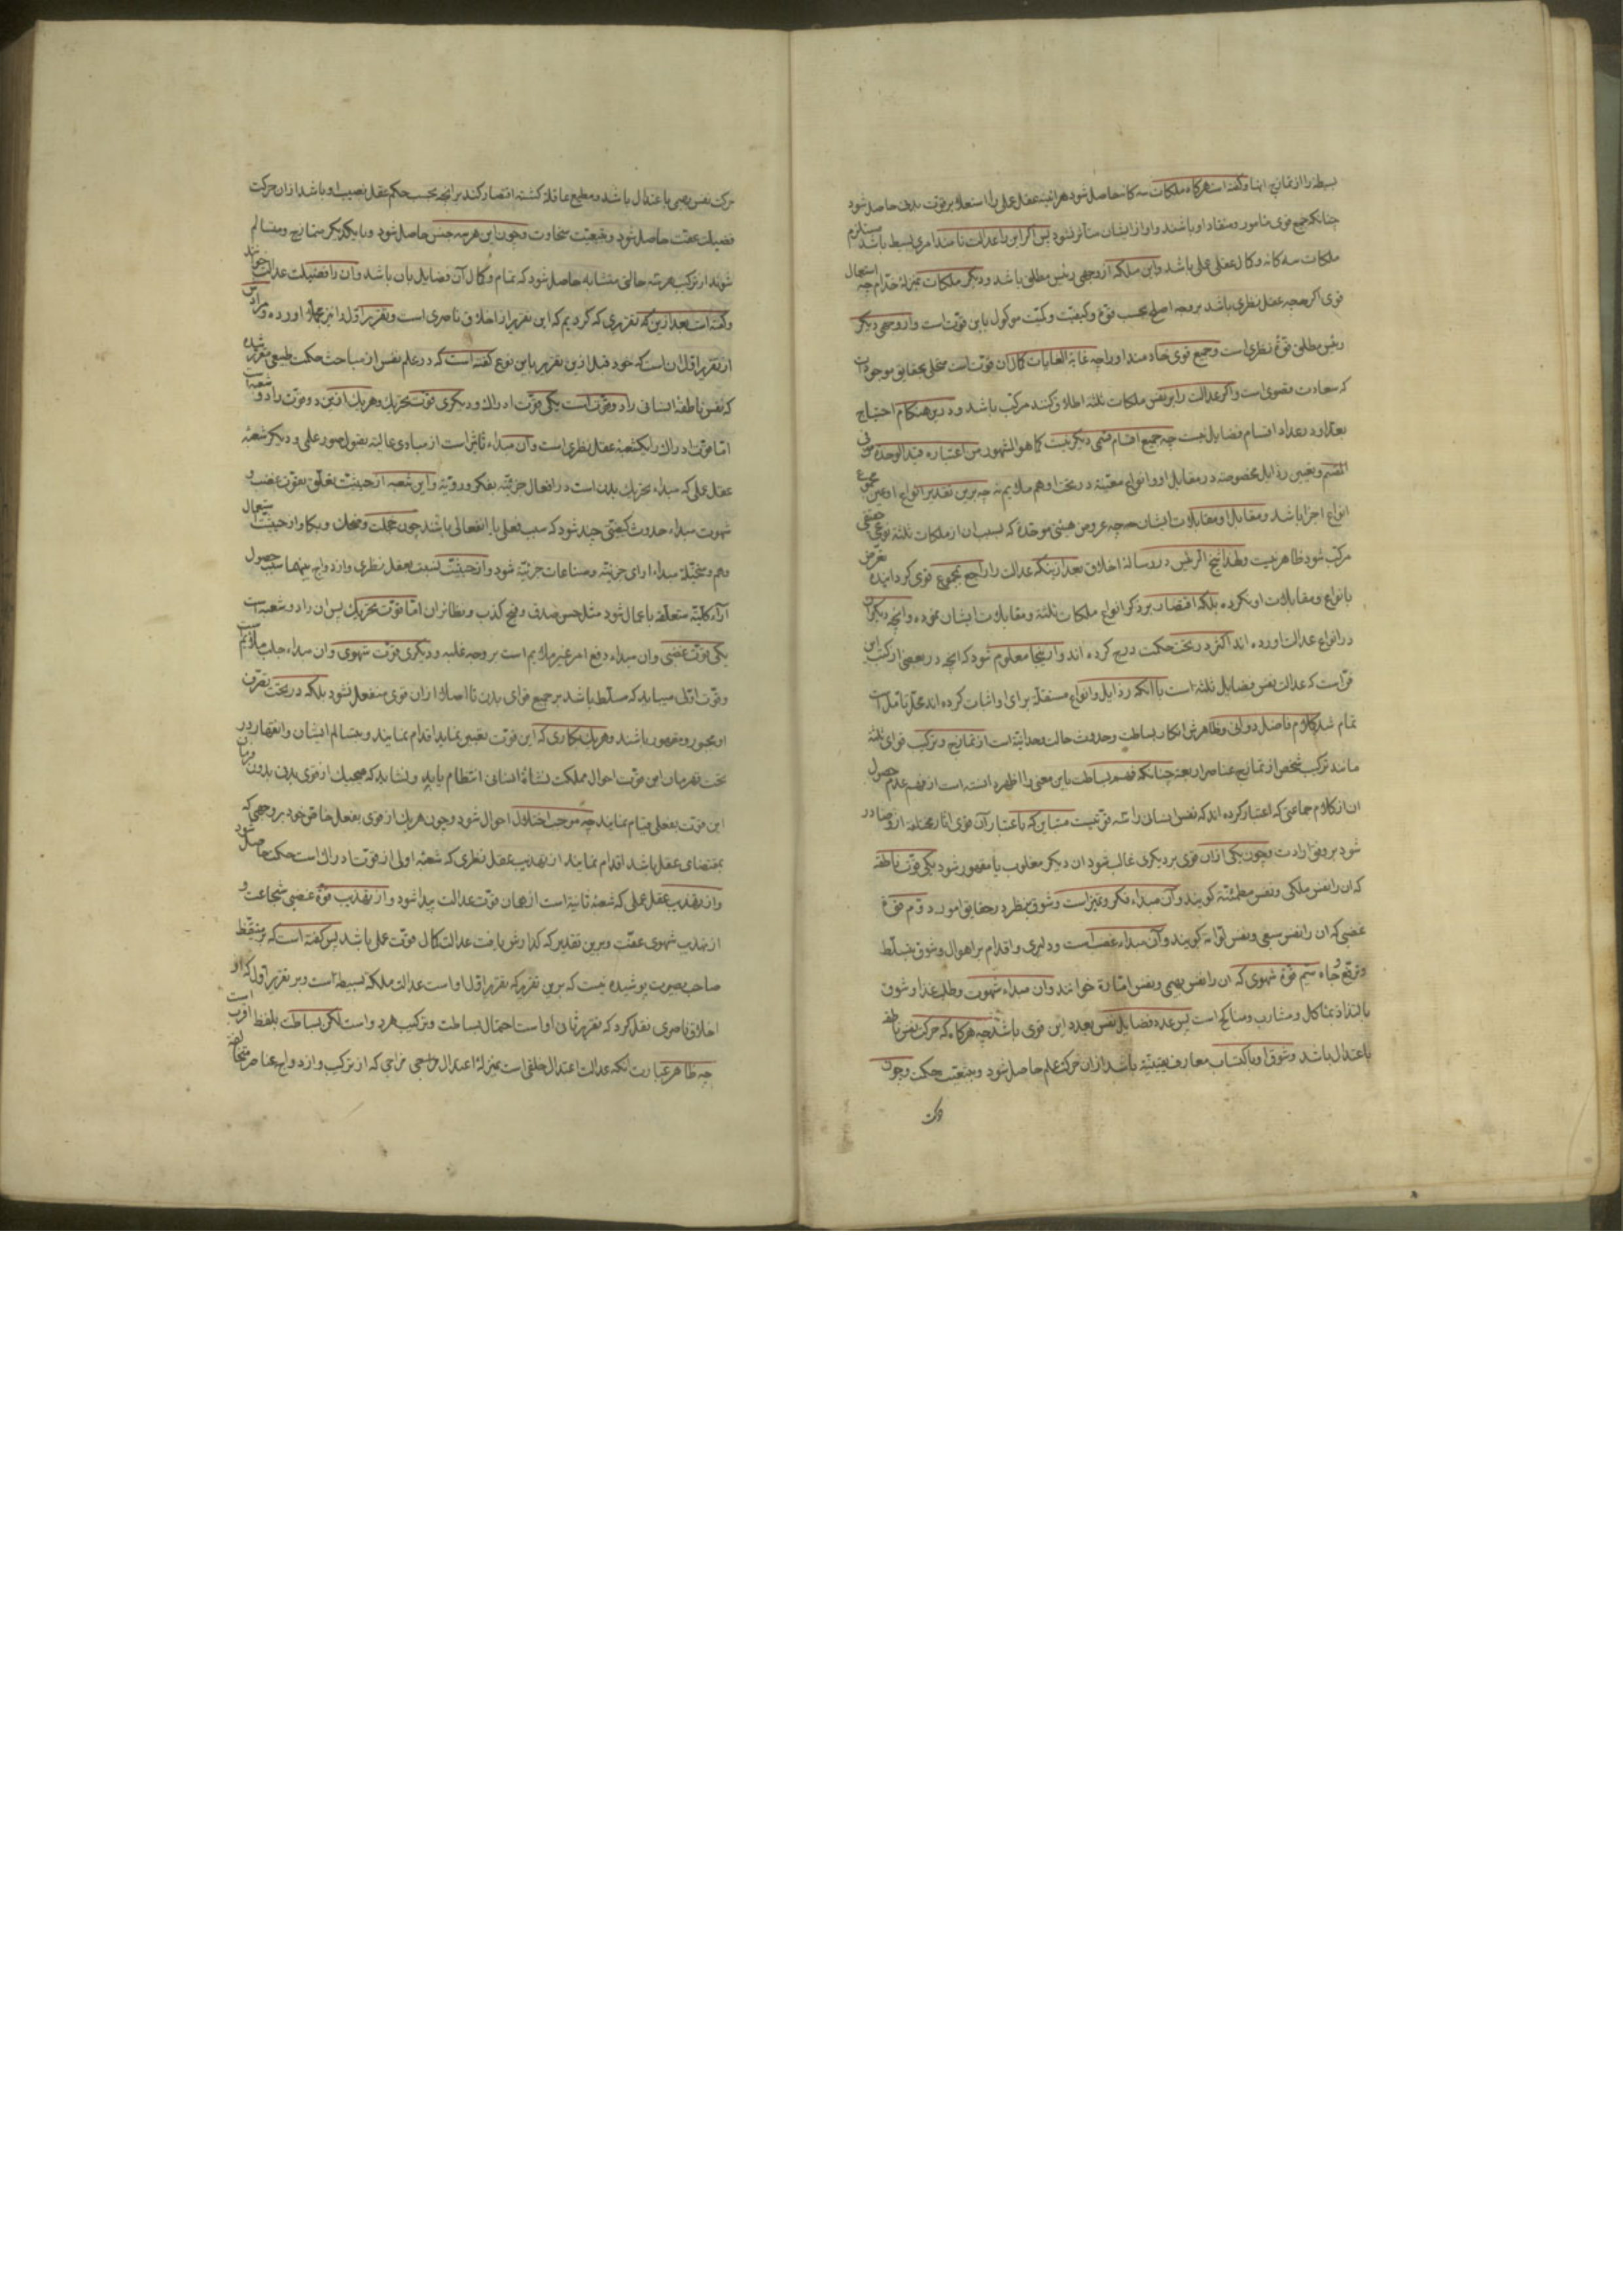 بسیط را از تمازج انها و گفته است هرگاه ملکات سه کانه حاصل شود هراینه عقل عملی را استعلا بر قوت بدنی حاصل شود
چنانکه جمیع قوی مامور و منقاد او باشند و او از ایشان متاثر نشود پس اگر این را عدالت نامند امری بسیط باشد مستلزم
ملکات سه کانه و کمال عقل عملی باشد و این ملکه از وجهی رئیس مطلق باشد و دیگر ملکات بمنزلهٔ خدام چه استعمال
قوی اگرچه عقل نظری باشد بر وجه اصلح بحسب وقوع و کیفیت و کمیت موکول باین قوتست و از وجهی دیگر
رئیس مطلق قوهٔ نظری است و جمیع قوی خادمند او را چه غایة الغایات کمال ان قوت است تحلی بحقایق موجودات
که سعادت قصوی است و اگر عدالت را بر نفس ملکات ثلثه اطلاق کنند مرکب باشد و درین هنگام احتیاج
بعد او در عداد اقسام فضایل نیست چه جمیع اقسام قسمی دیگر نیست کما هو المشهور من اعتباره قید الوحدة فی
المقسم و تعیین رذایل مخصوصه در مقابل او و انواع معینه در تحت او هم ملایم نه چه برین تقدیر انواع او عین مجموع
انواع اجزا باشد و مقابل او مقابلات ایشان چه عروض هیئتی موحده که بسبب ان از ملکات ثلثه نوعی حقیقی
مرکب شود ظاهر نیست و لهذا شیخ الرئیس در رسالهٔ اخلاق بعد ازینکه عدالت را راجع بمجموع قوی گردانیده تعرض
بانواع و مقابلات او نکرده بلکه اقتصار بر ذکر انواع ملکات ثلثه و مقابلات ایشان نموده و انچه دیگران
در انواع عدالت اورده اند اکثر در تحت حکمت درج کرده اند و از اینجا معلوم شود که انچه در بعضی از کتب این
فن است که عدالت نفس فضایل ثلثه است با انکه رذایل و انواع مستقله برای او اثبات کرده اند محل تاملست
تمام شد کلام فاضل دوانی و ظاهرش انکار بساطت و حدوث حالت وحدانیة است از تمازج و ترکیب قوای ثلثه
مانند ترکیب شخص از تمازج عناصر اربعه چنانکه فهم بساطت باین معنی را اظهر دانسته است از فهم عدم حصول
ان از کلام جماعتی که اعتبار کرده اند که نفس انسان را سه قوتست متباین که باعتبار آن قوی اثار مختلفه ازو صادر
شود بر وفق ارادت و چون یکی از ان قوی بر دیگری غالب شود ان دیگر مغلوب یا مقهور شود یکی قوت ناطقه
که ان را نفس ملکی و نفس مطمئنه گویند و آن مبداء فکر و تمیز است و شوق بنظر در حقایق امور دوم قوهٔ
غضبی که ان را نفس سبعی و نفس لوامه گویند و آن مبداء غضب است و دلیری و اقدام بر اهوال و شوق بتسلط
و ترفع و جاه سیم قوهٔ شهوی که ان را نفس بهیمی و نفس اماره خوانند وان مبداء شهوت و طلب غذا و شوق
بالتذاذ بمآکل و مشارب و مناکح است پس عدد فضایل نفس بعدد این قوی باشد چه هرگاه که حرکت نفس ناطقه
باعتدال باشد و شوق او باکتساب معارف یقینیه باشد از ان حرکت علم حاصل شود و بتبعیت حکمت و چون
حرکت نفس بهیمی باعتدال باشد و مطیع عاقله گشته اقتصار کند بر انچه بحسب حکم عقل نصیب او باشد از ان حرکت
فضیلت عفت حاصل شود و بتبعیت سخاوت و چون این هر سه جنس حاصل شود و با یکدیگر متمازج و متسالم
شوند از ترکیب هر سه حالتی متشابه حاصل شود که تمام و کمال آن فضایل بان باشد و ان را فضیلت عدالت خوانند
و گفته است بعد ازین که تقریری که کردیم که این تقریر از اخلاق ناصری است و تقریر اول را نیز مجملا اورده و مرادش
از تقریر اول ان است که خود قبل ازین تقریر باین نوع گفته است که در علم نفس از مباحث حکمت طبیعی مقرر شده
که نفس ناطقهٔ انسانی را دو قوت است یکی قوت ادراک و دیگری قوت تحریک و هر یک از این دو قوت را دو شعبه است
اما قوت ادراک را یک شعبه عقل نظری است و آن مبداء تاثر است از مبادی عالیه بقبول صور علمی و دیگر شعبهٔ
عقل عملی که مبداء تحریک بدن است در افعال جزئیه بفکر و رویة و این شعبه از حیثیت تعلق بقوت غضب و
شهوت مبداء حدوث کیفیتی چند شود که سبب فعلی یا انفعالی باشد چون خجلت و ضحک و بکا و از حیثیت استعمال
وهم و متخیله مبداء ارای جزئیه و صناعات جزئیه شود و از حیثیت نسبت بعقل نظری و ازدواج بینهما سبب حصول
آراء کلیه متعلقه باعمال شود مثل حسن صدق و قبح کذب و نظایر ان اما قوت تحریک پس ان را دو شعبه است
یکی قوت غضبی وان مبداء دفع امر غیر ملایم است بر وجه غلبه و دیگری قوت شهوی وان مبداء جلب ملایم
و قوت اولی میباید که مسلط باشد بر جمیع قوای بدن تا اصلا از ان قوی منفعل نشود بلکه در تحت تصرف
او مجبور و مقهور باشند و هر یک بکاری که این قوت تعیین نماید اقدام نمایند و بتسالم ایشان و انقهار در
تحت قهرمان این قوت احوال مملکت نشاهٔ انسانی انتظام یابد و نشاید که هیچیک از قوی بدنی بدون فرمان
این قوت بفعلی قیام نمایند چه موجب اختلال احوال شود و چون هر یک از قوی بفعل خاص خود بر وجهی که
بمقتضای عقل باشد اقدام نمایند از تهذیب عقل نظری که شعبهٔ اولی از قوت ادراک است حکمت حاصل شود
و از تهذیب عقل عملی که شعبه ثانیه است از همان قوت عدالت پیدا شود و از تهذیب قوهٔ غضبی شجاعت و
از تهذیب شهوی عفت و برین تقدیر که گذارش یافت عدالت کمال قوت عملی باشد پس گفته است که بر متیقظ
صاحب بصیرت پوشیده نیست که برین تقریر که تقریر اول او است عدالت ملکه بسیطه است و بر تقریر اول که از
اخلاق ناصری نقل کرد که تقریر ثانی او است احتمال بساطت و ترکیب هر دو است لکن بساطت بلفظ اقرب است
چه ظاهر عبارت انکه عدالت اعتدال خلقی است بمنزلهٔ اعتدال مزاجی که از ترکیب و ازدواج عناصر متخالفه